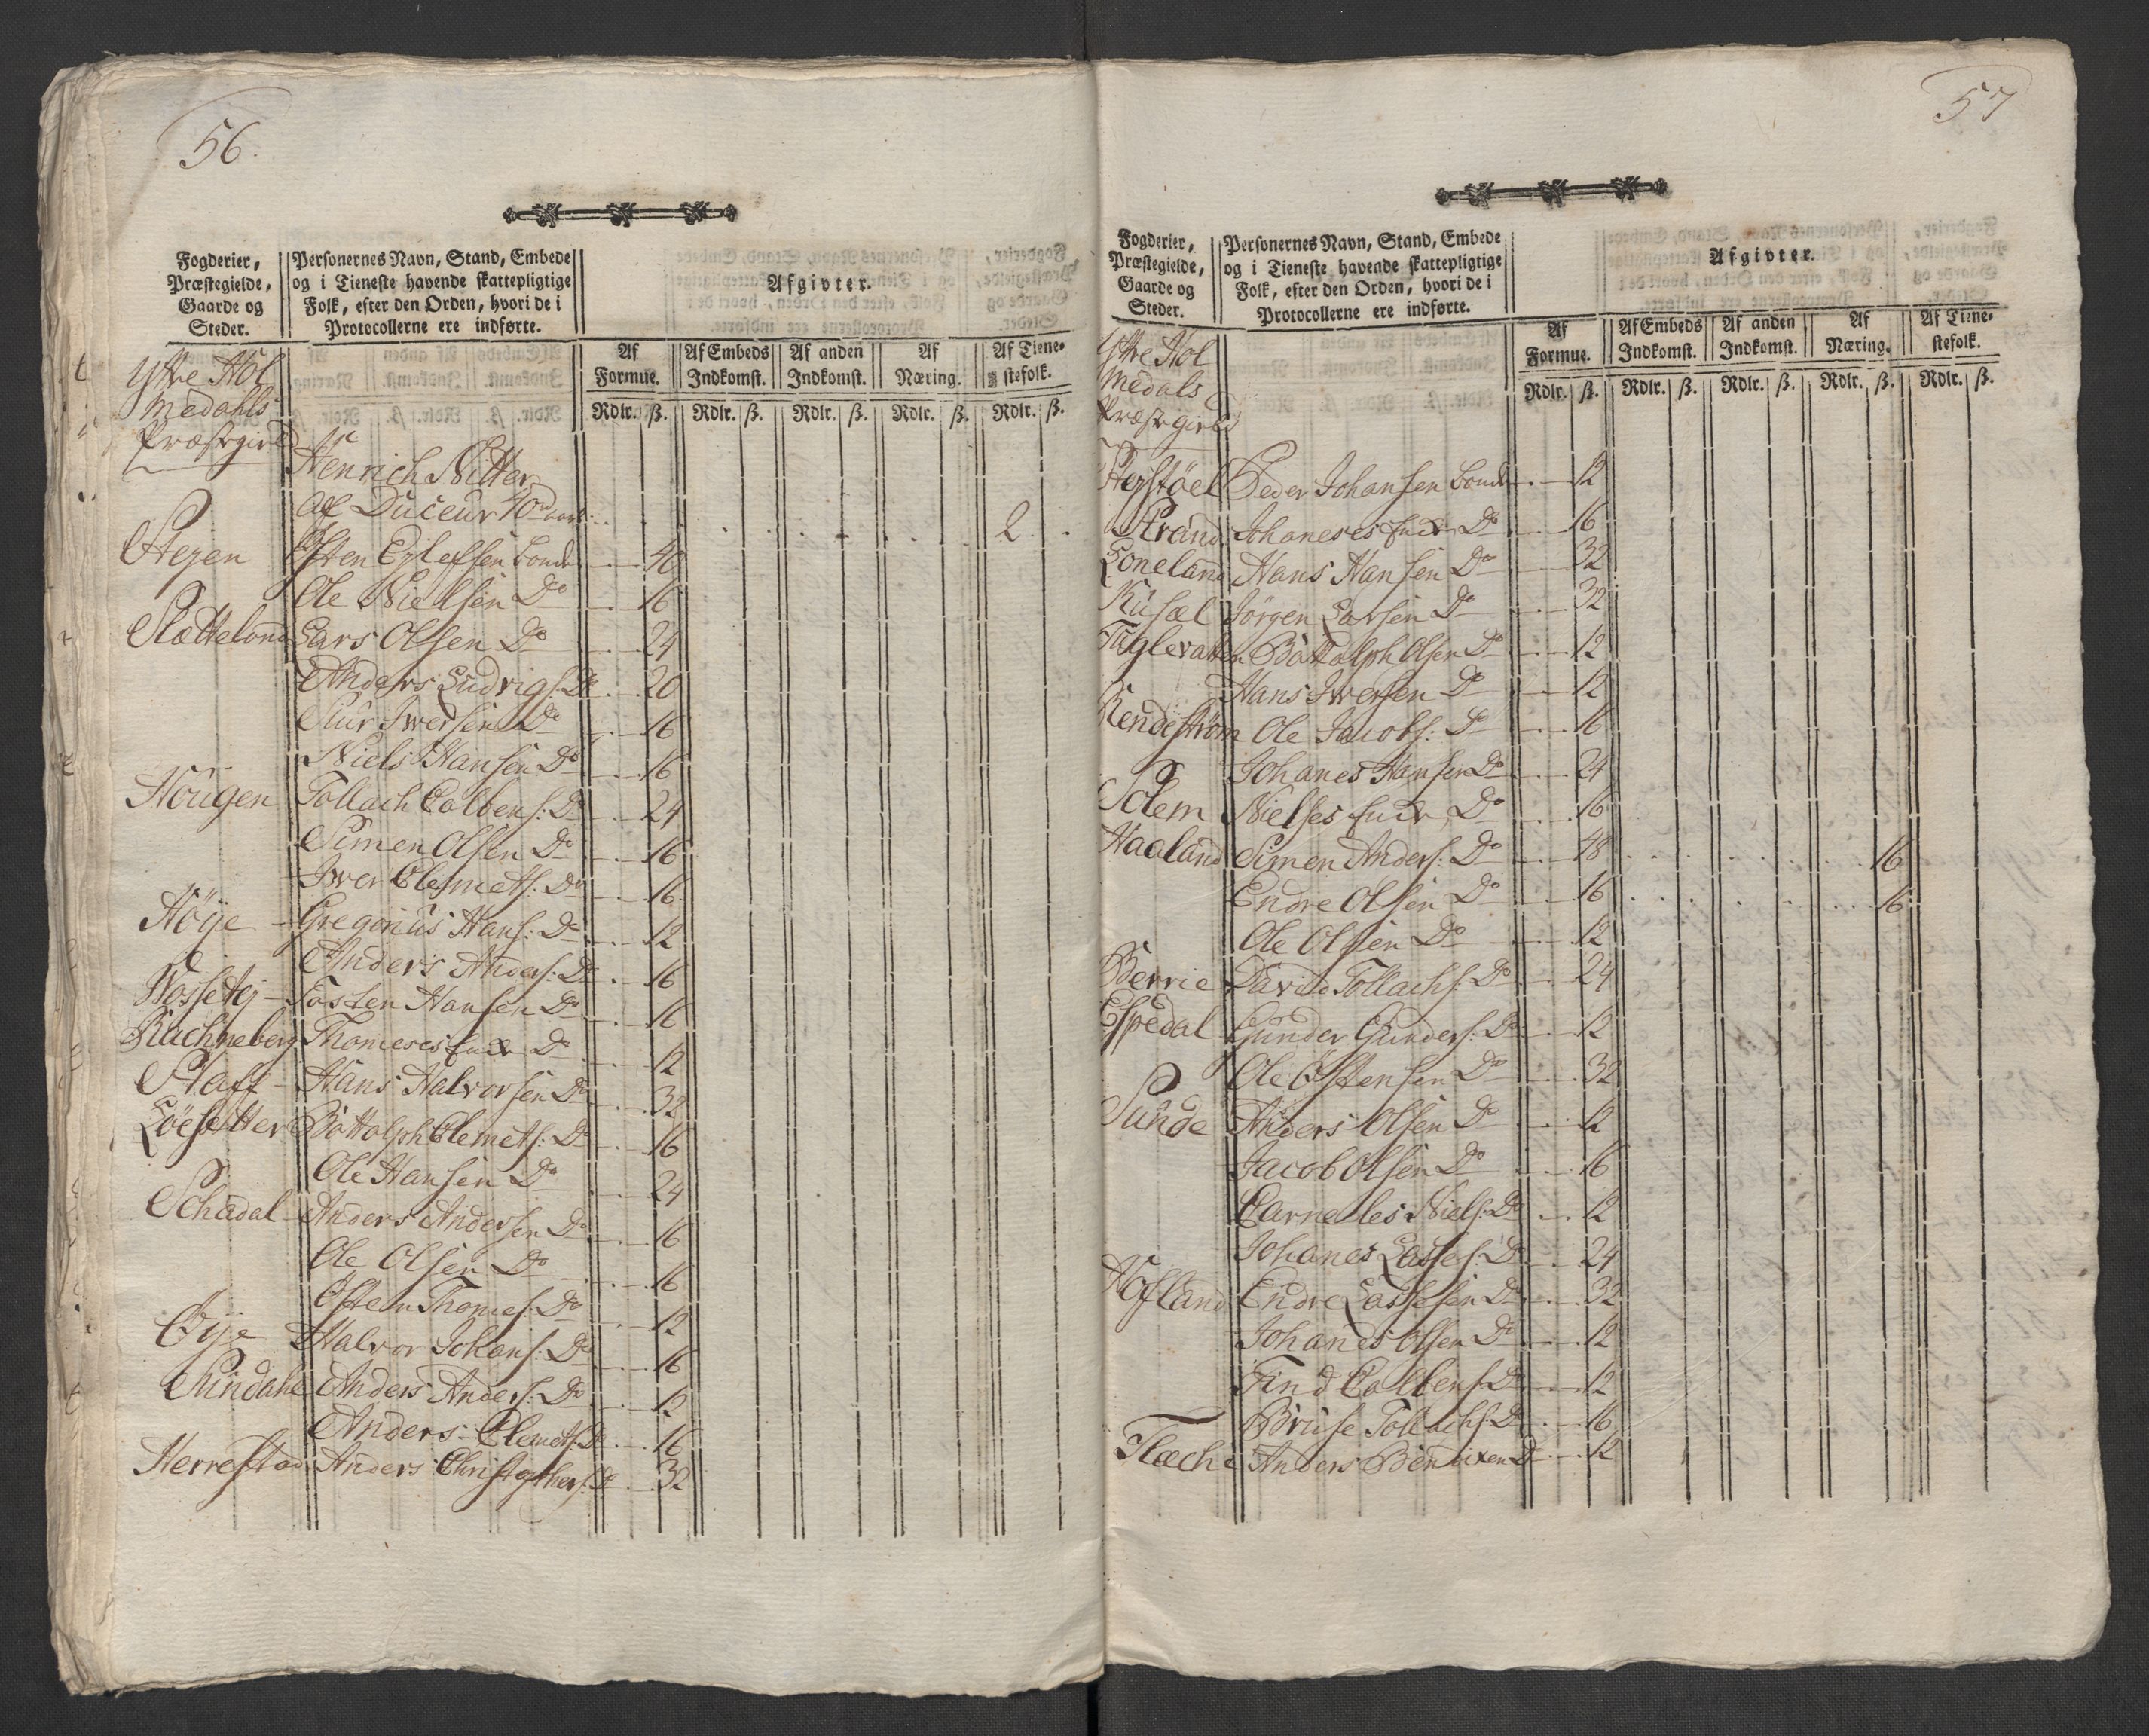 56.
Fogderier,
Præstegielde,
Gaarde og
Steder.
Personernes Navn, Stand, Embede
og i Tieneste havende skattepligtige
Folk, efter den Orden, hvori de i
Protocollerne ere indførte.
Afgivter.
Af Formue.
Af Embeds Indkomst.
Af anden Indkomst.
Af Næring.
Af Tienestefolk.
Rdlr. ß. Rdlr. ß. Rdlr. ß. Rdlr. ß. Rdlr. ß.
Yttre Hol
medahls
Præstegield
Hr
Henrich Nitter
af Duceur 40 2
Stejen Østen Ejlefsen Bonde 40
Ole Nielsen Do 16
Slætteland Lars Olsen Do 24
Anders Ludvigs: Do 20
Siur Iversen Do 16
Niels Hansen Do 16
Hougen Tollach Colbens: Do 24
Simen Olsen Do 16
Iver Clemets: Do 16
Höye Gregorius Hans: Do 12
Anders Anders: Do 16
Wossetej Tosten Hansen Do 16
Rachneberg Thomeses Enke Do 12
Staff Hans Halvorsen Do 32
Löesetter Bottolph Clemets: Do 16
Ole Hansen Do 24
Schadal Anders Andersen Do 16
Ole Olsen Do 16
Østen Thomes: Do 12
Øye Halvor Johans: Do 16
Sundahl Anders Anders: Do 12
Anders Clemets: Do 16
Herrestad Anders Christophers: Do 32
57
Fogderier,
Præstegielde,
Gaarde og
Steder.
Personernes Navn, Stand, Embede
og i Tieneste havende skattepligtige
Folk, efter den Orden, hvori de i
Protocollerne ere indførte.
Afgivter.
Af Formue.
Af Embeds Indkomst.
Af anden Indkomst.
Af Næring.
Af Tienestefolk.
Rdlr. ß. Rdlr. ß. Rdlr. ß. Rdlr. ß. Rdlr. ß.
Yttre Hol
medals
Præstegield
Peder Johansen Bonde 12
Strand Johaneses Enke Do 16
Loneland Hans Hansen Do 32
Jörgen Larsen Do 32
Fuglevatten Bottolph Olsen Do 12
Hans Iversen Do 12
Ole Jacobs: Do 16
Johanes Hansen Do 24
Solem Nielses Enke Do 16
Haaland Simen Anders: Do 48 16
Endre Olsen Do 16 16
Ole Olsen Do 12
Berrie David Tollachs: Do 24
Espedal Gunder Gunders: Do 12
Ole Østensen Do 32
Sunde Anders Olsen Do 12
Jacob Olsen Do 16
Carneles Niels: Do 12
Johanes Lasses: Do 24
Hofland Endre Lassesen Do 32
Johanes Olsen Do 12
Find Colbens: Do 12
Bruse Tollachs: Do 16
Flæche Anders Bendixen Do 12